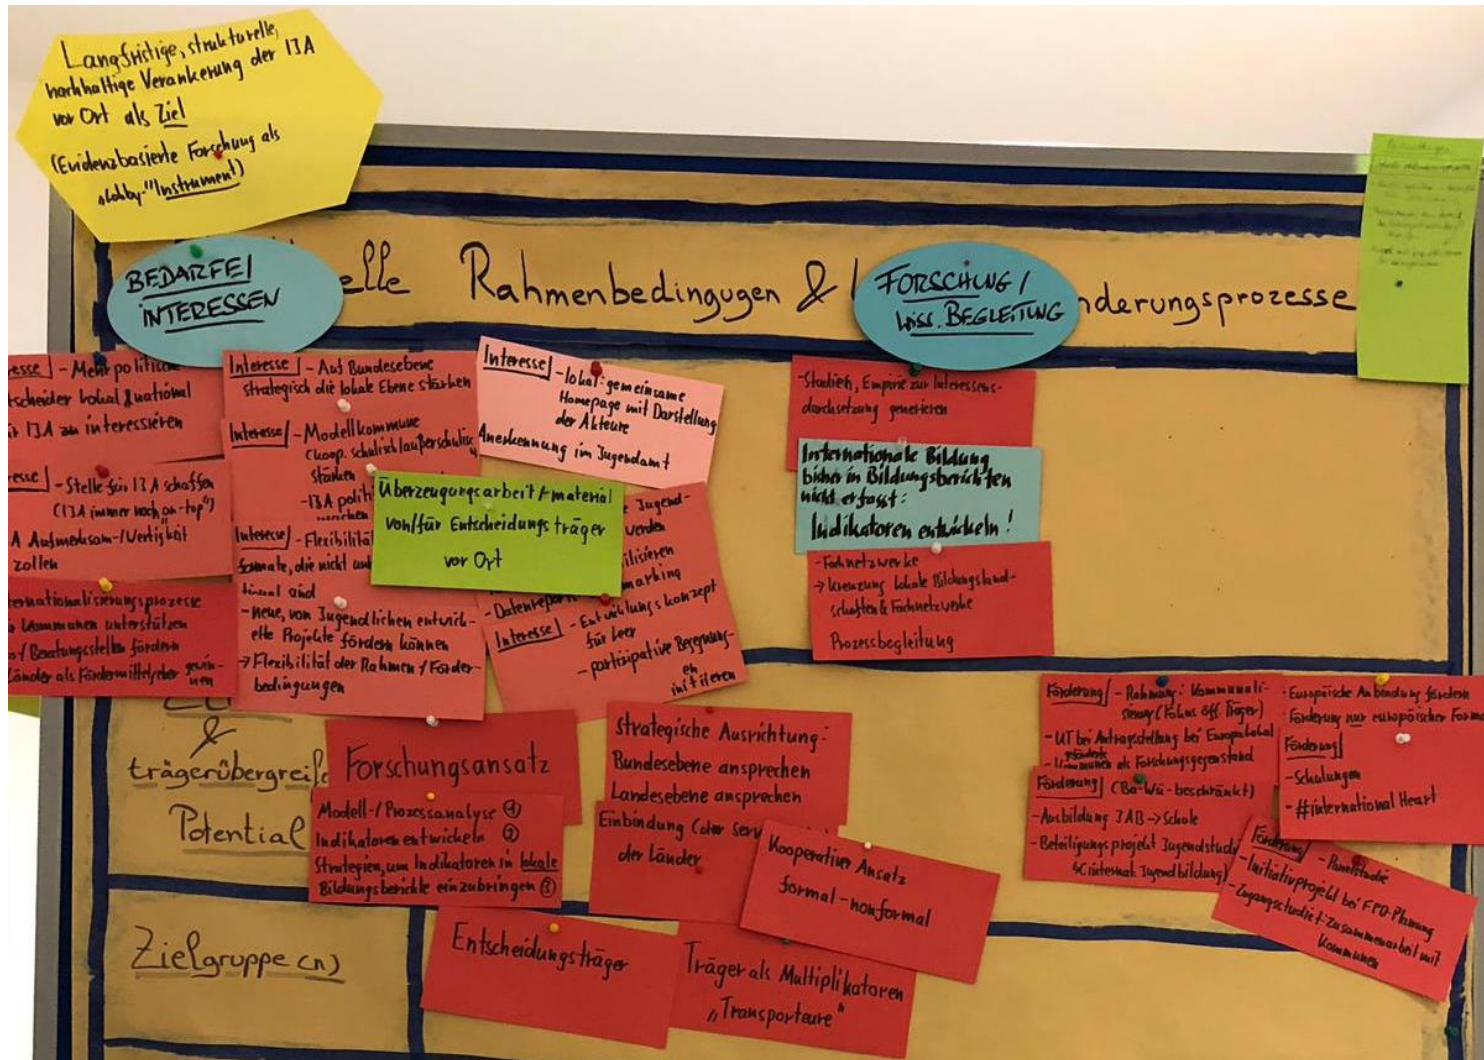 Langfristige, strukturelle,
nachhaltige Verankerung der IJA
vor Ort als Ziel
(Evidenzbasierte Forschung als
„Lobby-"Instrument)
BEDARFE/
INTERESSEN
elle Rahmenbedingugen &
FORSCHUNG/
WISS. BEGLEITUNG
nderungsprozesse
esse - Mehr politische
tscheider lokal & national
ür IJA zu interessieren
esse - Stelle für IJA schaffen
(IJA immer noch „on-top")
A Aufmerksam-/Wertigkeit
zollen
ternationalisierungsprozesse
Kommunen unterstützen
o/Beratungsstellen fördern
Länder als Fördermittelgeber gewin-
nen
Interesse - Auf Bundesebene
strategisch die lokale Ebene stärken
Interesse - Modellkommune
(koop. schulisch/außerschulisch
stärken
- IJA politi
Interesse - Flexibilität
formate, die nicht
tional sind
- neue, von Jugendlichen entwick-
elte Projekte fördern können
→ Flexibilität der Rahmen/Förder-
bedingungen
Interesse - lokal: gemeinsame
Homepage mit Darstellung
der Akteure
Anerkennung im Jugendamt
Überzeugungsarbeit/-material
von/für Entscheidungsträger
vor Ort
e Jugend-
werden
ilisieren
marking
- Datenreport
Interesse - Entwicklungskonzept
für Leer
- partizipative Begegnung-
en
initiieren
- Studien, Empirie zur Interessens-
durchsetzung generieren
Internationale Bildung
bisher in Bildungsberichten
nicht erfasst:
Indikatoren entwickeln!
- Fachnetzwerke
→ Kreuzung lokale Bildungsland-
schaften & Fachnetzwerke
Prozessbegleitung
&
trägerübergreife
Potential
Forschungsansatz
Modell-/Prozessanalyse ①
Indikatoren entwickeln ②
Strategien, um Indikatoren in lokale
Bildungsberichte einzubringen ③
strategische Ausrichtung:
Bundesebene ansprechen
Landesebene ansprechen
Einbindung
der Länder
Kooperativer Ansatz
formal-nonformal
Förderung - Rahmung: Kommunali-
sierung (Fokus öff. Träger)
- UT bei Antragsstellung bei Europa Lokal
- geförderte Kommunen als Forschungsgegenstand
Förderung (Ba-Wü-beschränkt)
- Ausbildung JAB → Schule
- Beteiligungsprojekt Jugendstudie
internat. Jugendbildung)
- Europäische Anbindung fördern
Förderung nur europäischer Forma
Förderung
- Schulungen
- #international Heart
Förderung - Panelstudie
- Initiativprojekt bei FPD-Planung
- Zugangsstudie+: Zusammenarbeit mit
Kommunen
Zielgruppe(n)
Entscheidungsträger
Träger als Multiplikatoren
„Transporteure"